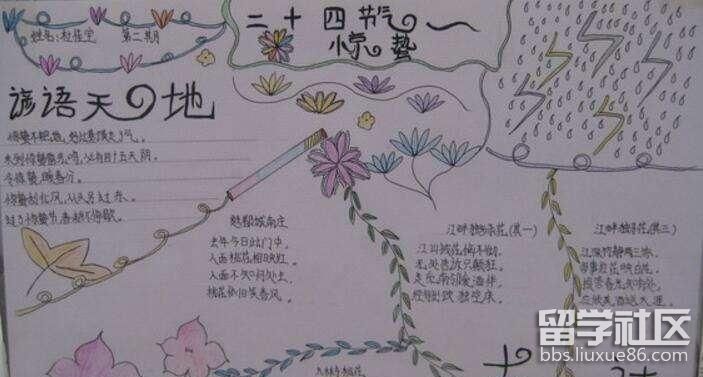 姓名:杜佳莹
第二期
二十四节气
惊蛰
谚语天地
惊蛰不耙地,好比蒸馍走了气。
未到惊蛰雷先鸣,必有四十五天阴。
冷惊蛰,暖春分。
惊蛰刮北风,从头另过冬。
过了惊蛰节,春耕不停歇。
题都城南庄
去年今日此门中,
人面桃花相映红。
人面不知何处去,
桃花依旧笑春风。
江畔独步寻花(其一)
江上被花恼不彻,
无处告诉只颠狂。
走觅南邻爱酒伴,
经旬出饮独空床。
江畔独步寻花(其三)
江深竹静两三家,
多事红花映白花。
报答春光知有处,
应须美酒送生涯。
留学社区
bbs.liuxue86.com